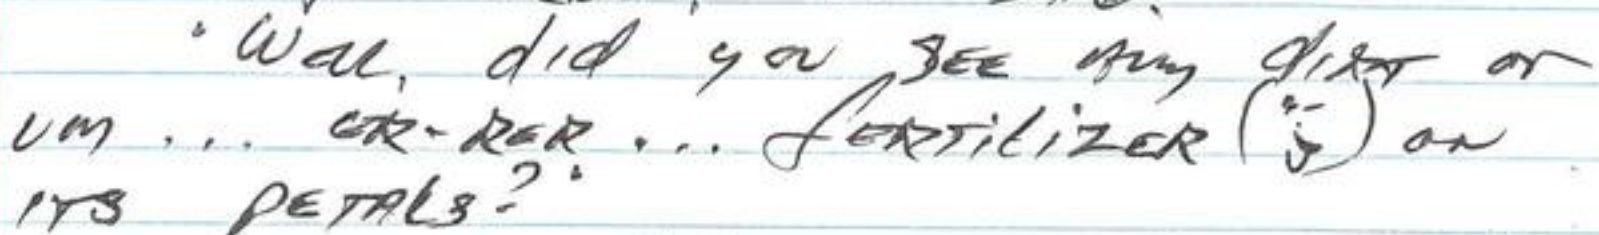 "Well, did you SEE any dirt or
um... ER-RER... fERTiliZER (;-) on
ITS PETALS?"